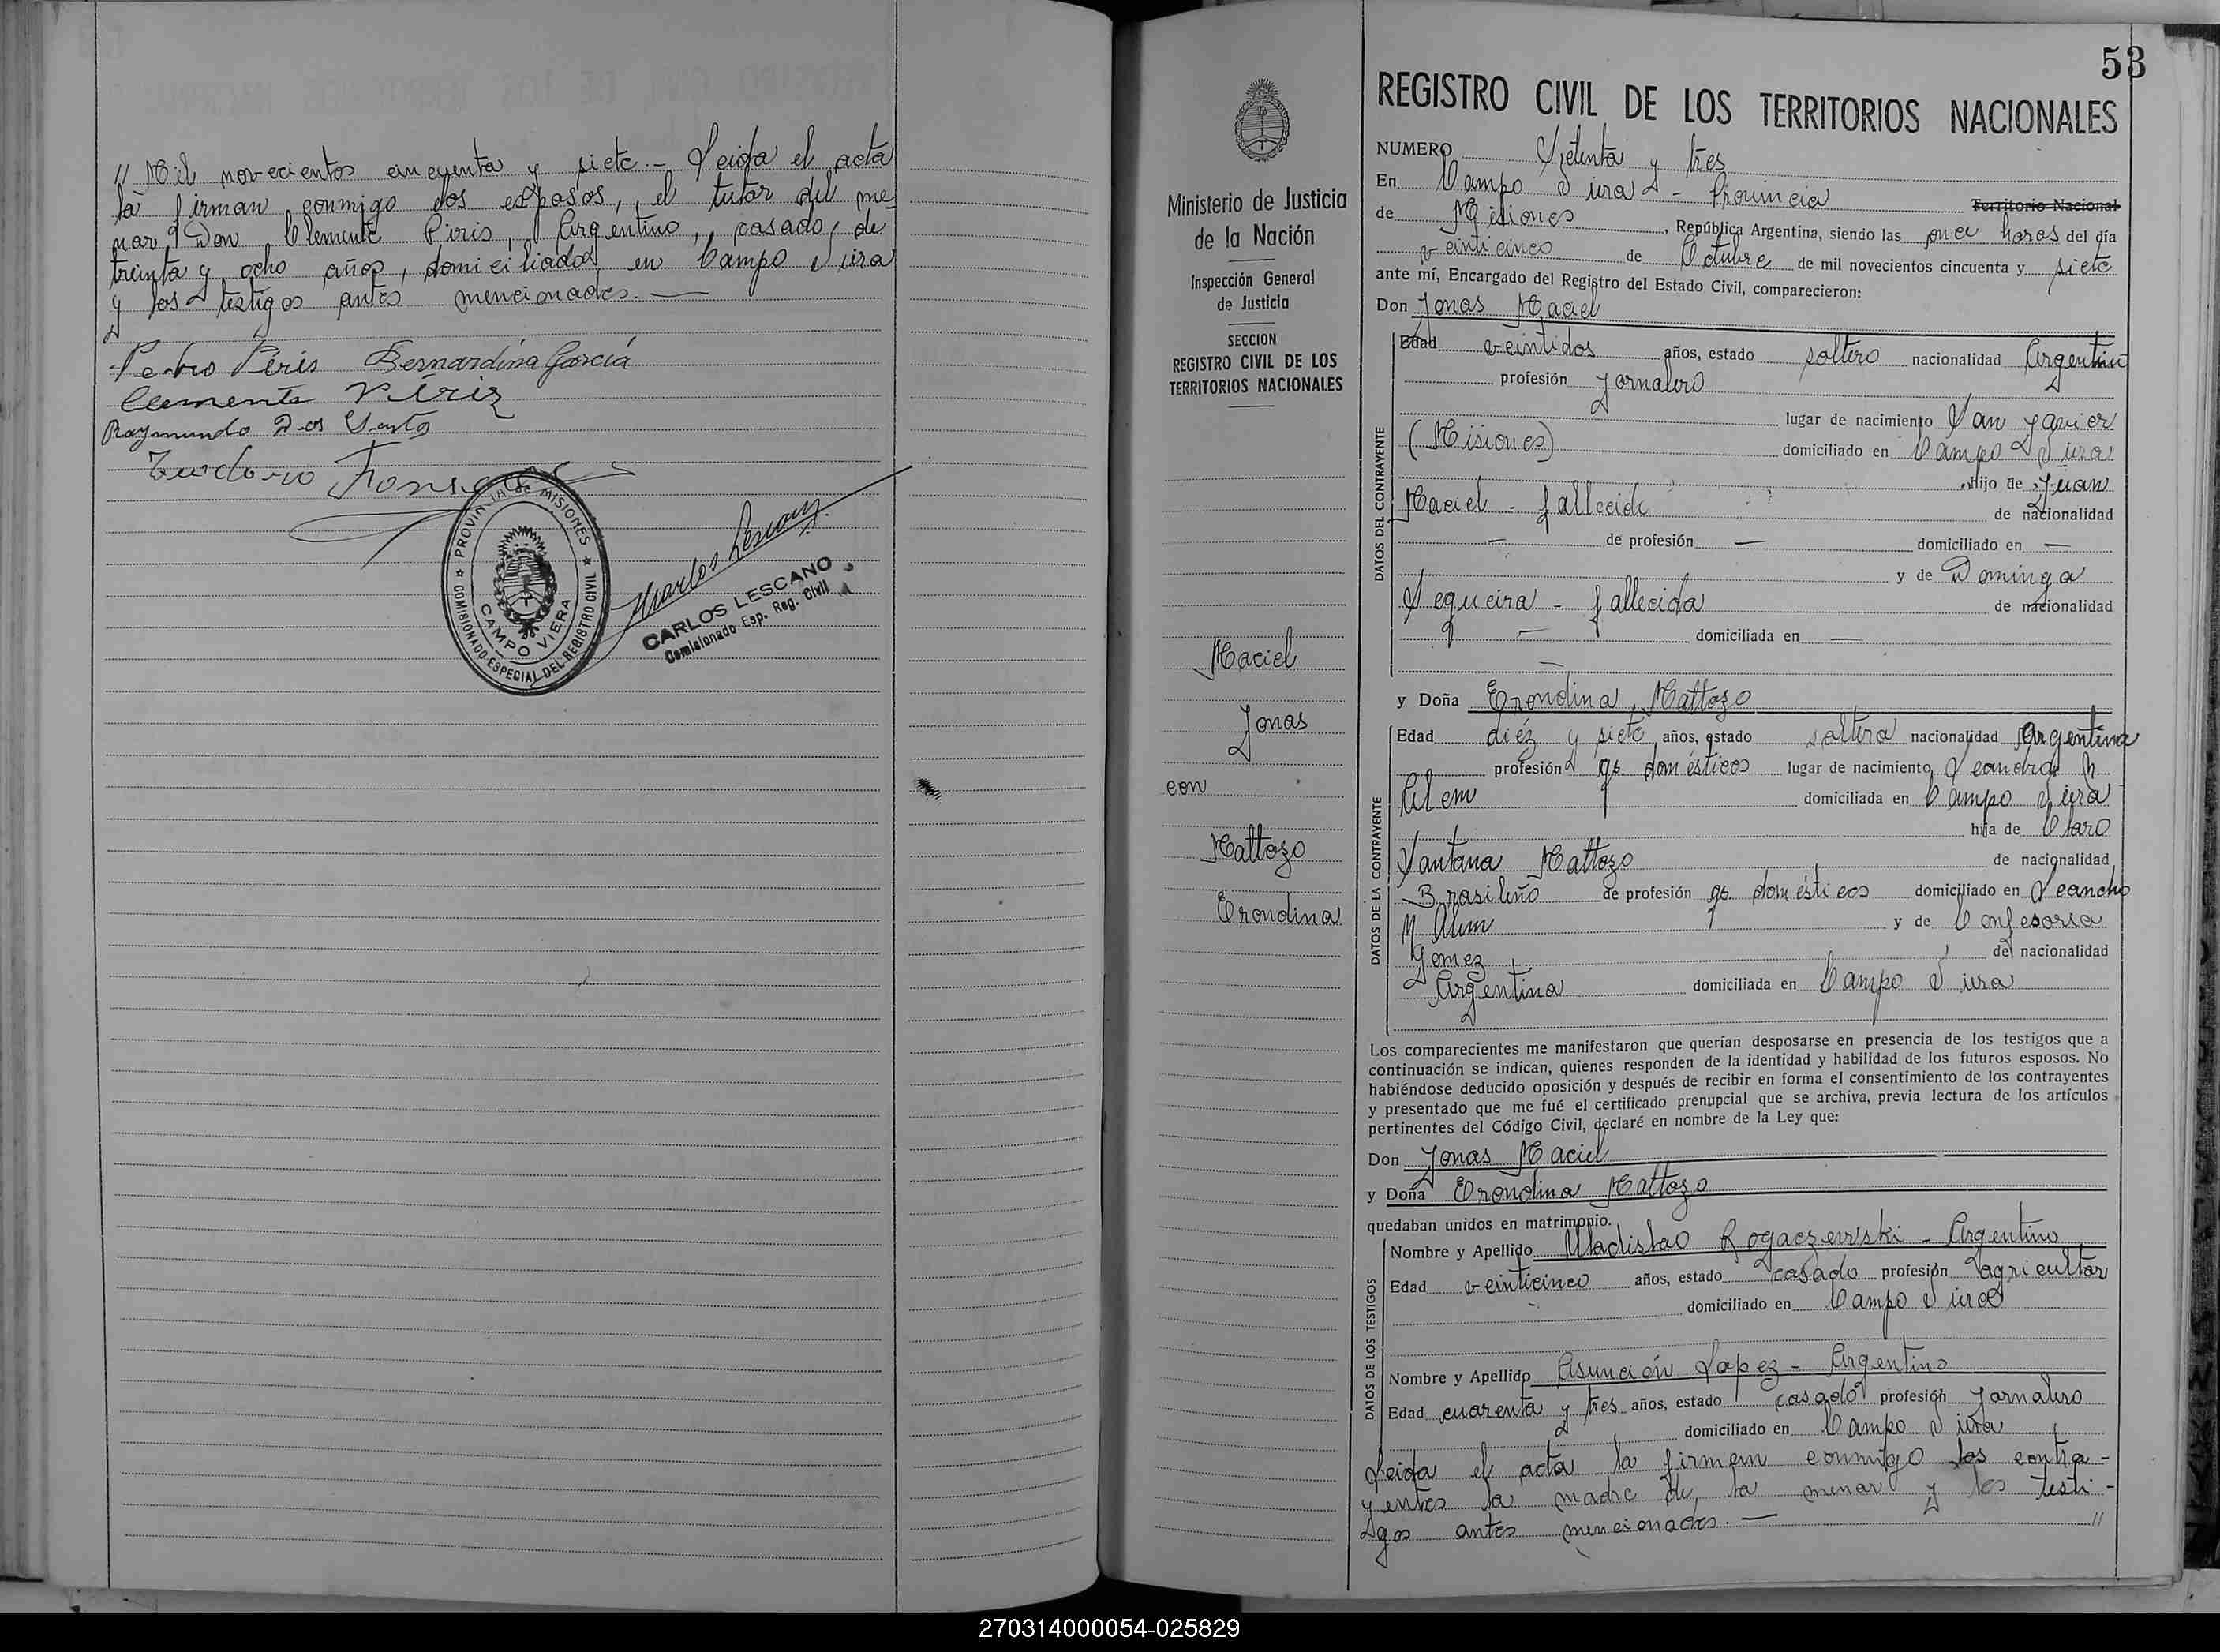 // Mil novecientos cincuenta y siete.- Leida el acta
la firman conmigo los esposos, el tutor del me-
nor, Don Clemente Piris, Argentino, casado, de
treinta y ocho años, domiciliado en Campo Viera
y los testigos antes mencionados.—
Pedro Péris Bernardina García
Clemente Píriz
Raymundo Dos Santos
Teodoro Fonseca
PROVINCIA de MISIONES
COMISIONADO ESPECIAL DEL REGISTRO CIVIL
CAMPO VIERA
Carlos Lescano
CARLOS LESCANO
Comisionado Esp. Reg. Civil
53
Ministerio de Justicia
de la Nación
Inspección General
de Justicia
SECCION
REGISTRO CIVIL DE LOS
TERRITORIOS NACIONALES
Maciel
Jonas
con
Mattozo
Erondina
REGISTRO CIVIL DE LOS TERRITORIOS NACIONALES
NUMERO Setenta y tres
En Campo Viera - Provincia Territorio Nacional
de Misiones, República Argentina, siendo las once horas del día
veinticinco de Octubre de mil novecientos cincuenta y siete
ante mí, Encargado del Registro del Estado Civil, comparecieron:
Don Jonas Maciel
DATOS DEL CONTRAYENTE
Edad veintidos años, estado soltero nacionalidad Argentin
profesión Jornalero
lugar de nacimiento San Javier
(Misiones) domiciliado en Campo Viera
Hijo de Juan
Maciel - fallecido de nacionalidad
— de profesión — domiciliado en —
y de Dominga
Sequeira - fallecida de nacionalidad
— domiciliada en —
—
y Doña Erondina Mattozo
DATOS DE LA CONTRAYENTE
Edad diéz y siete años, estado soltera nacionalidad Argentina
profesión qs. domésticos lugar de nacimiento Leandro N
Alem domiciliada en Campo Viera
hija de Claro
Santana Mattozo de nacionalidad
Brasileño de profesión qs. domésticos domiciliado en Leandro
N Alem y de Confesoria
Gomez de nacionalidad
Argentina domiciliada en Campo Viera
Los comparecientes me manifestaron que querían desposarse en presencia de los testigos que a
continuación se indican, quienes responden de la identidad y habilidad de los futuros esposos. No
habiéndose deducido oposición y después de recibir en forma el consentimiento de los contrayentes
y presentado que me fué el certificado prenupcial que se archiva, previa lectura de los artículos
pertinentes del Código Civil, declaré en nombre de la Ley que:
Don Jonas Maciel
y Doña Erondina Mattozo
quedaban unidos en matrimonio.
DATOS DE LOS TESTIGOS
Nombre y Apellido Uladislao Rogaczewski - Argentino
Edad veinticinco años, estado casado profesión agricultor
domiciliado en Campo Viera
Nombre y Apellido Asunción Lopez - Argentino
Edad cuarenta y tres años, estado casado profesión Jornalero
domiciliado en Campo Viera
Leida el acta la firman conmigo los contra-
yentes la madre de la menor y los testi-
gos antes mencionados.— //
270314000054-025829